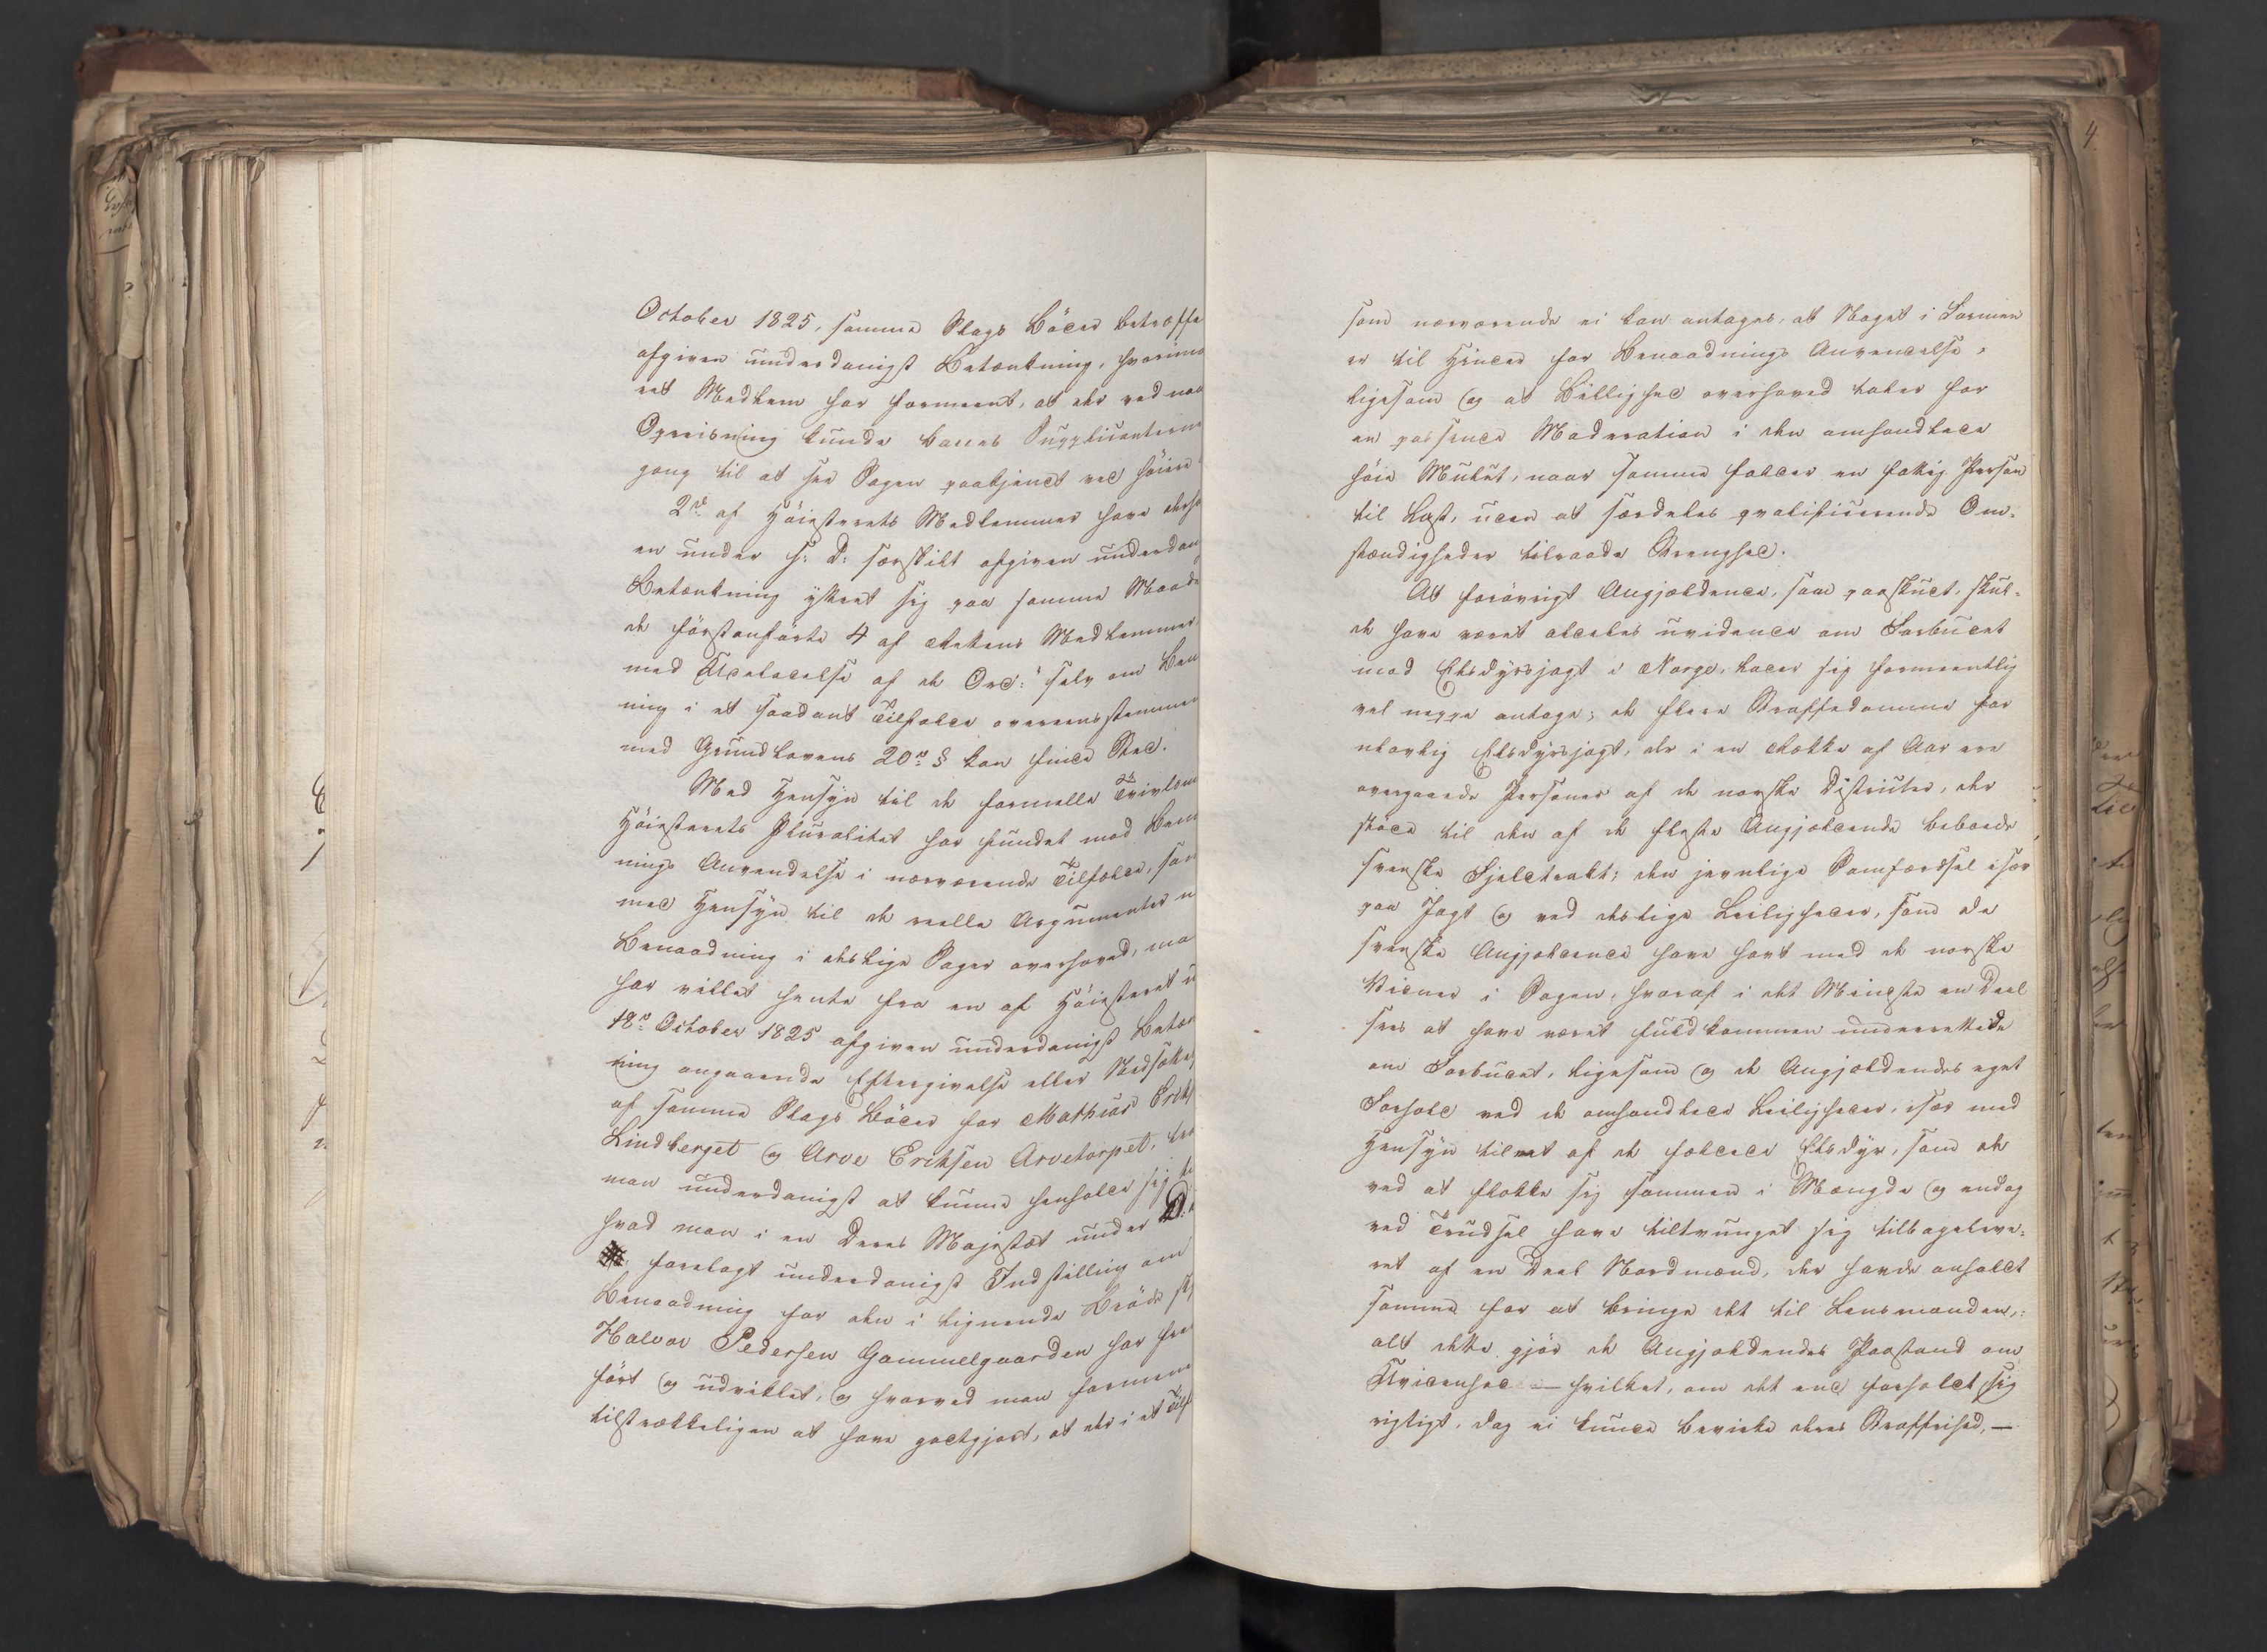 October 1825, samme Slags Böder betræffe
afgiven underdanigst Betænkning, hvorimo
eet Medlem har formeent, at der ved naa
Opreisning kunde banes Supplicanterne
gang til at see Sagen paakjendt ved höiere
2de af Höiesterets Medlemmer have derho
en under s: D: særskilt afgiven underdan
Betænkning yttret sig paa samme Maade
de förstanförte 4 af Rettens Medlemmer
med Udeladelse af de Ord: "selv om Ben
ning i et saadant Tilfælde overeensstemmen
med Grundlovens 20de § kan finde Sted.
Med Hensyn til de formelle Tvivlsom
Höiesterets Pluralitet har fundet mod Ben
nings Anvendelse i nærværende Tilfælde, saa
med Hensyn til de reelle Argumenter n
Benaadning i deslige Sager overhoved, ma
har villet hente fra en af Höiesteret u
18de October 1825 afgiven underdanigst Betæn
ning angaaende Eftergivelse eller Nedsætte
af samme Slags Böder for Mathias Erik
Lindberget og Arve Eriksen Arvetorpet, tro
man underdanigst at kunne henholde sig ti
hvad man i en Deres Majestæt under D:
forelagt underdanigst Indstilling om
Benaadning for den i lignende Bröde st
Halvor Pedersen Gammelgaarden har fre
fört og udviklet, og hvorved man formene
tilstrækkeligen at have godtgjort, at der i et Tilf
4
som nærværende ei kan antages, at Noget i Formen
er til Hinder for Benaadnings Anvendelse,
ligesom og at Billighed overhoved taler for
en passende Moderation i den omhandlede
höie Mulct, naar samme falder en fattig Person
til Last, uden at særdeles qvalificerende Om-
stændigheder tilraade Strenghed.
At forövrigt Angjældende, som paaskudt, skul-
de have været aldeles uvidende om Forbudet
mod Elsdyrsjagt i Norge, lader sig formeentlig
vel neppe antage; de flere Straffedomme for
ulovlig Elsdyrsjagt, der i en Række af Aar ere
overgaaede Personer af de norske Districter, der
stöde til den af de fleste Angjældende beboede
svenske Fjeldtrakt; den jevnlige Samfærdsel især
paa Jagt og ved deslige Leiligheder, som de
svenske Angjældende have havt med de norske
Vidner i Sagen, hvoraf i det Mindste en Deel
sees at have været fuldkommen underrettede
om Forbudet, ligesom og de Angjældendes eget
Forhold ved de omhandlede Leiligheder, især med
Hensyn til et af de fældede Elsdyr, som de
ved at flokke sig sammen i Mængde og endog
ved Trudsel have tiltvunget sig tilbageleve-
ret af en Deel Nordmænd, der havde anholdt
samme for at bringe det til Lensmanden,:
alt dette gjör de Angjældendes Paastand om
Uvidenhed — hvilket, om det end forholdt sig
rigtigt, dog ei kunde bevirke deres Straffrihed, —